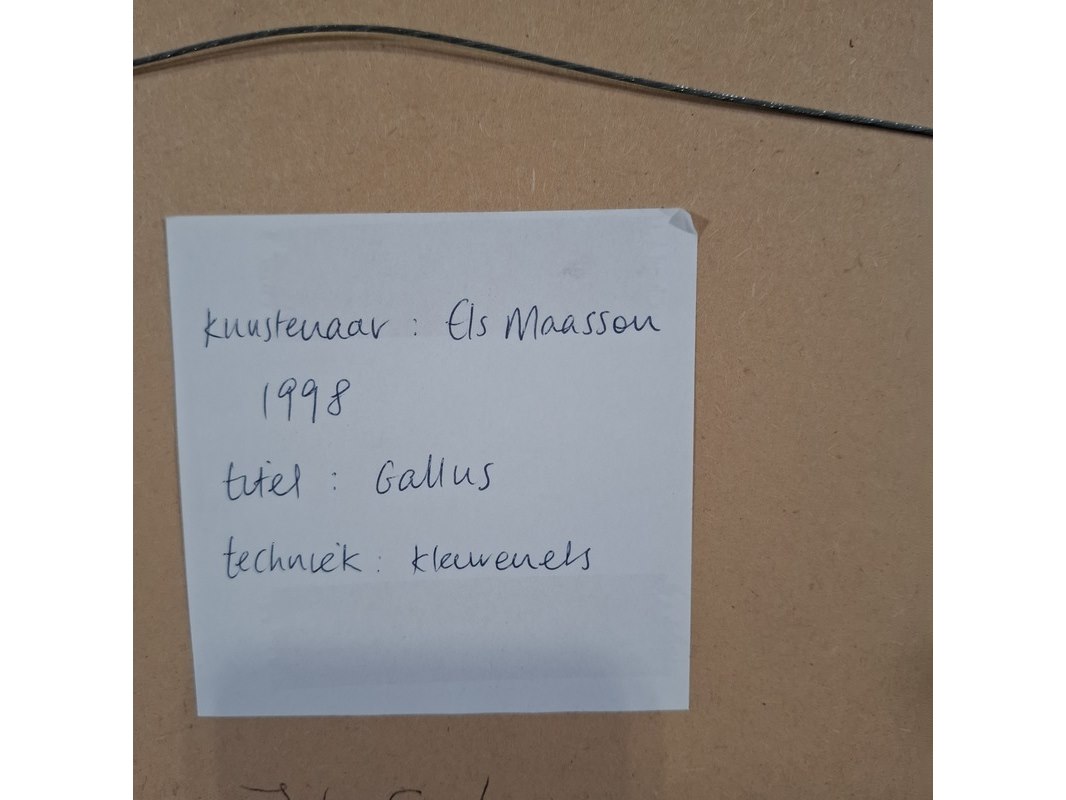 kunstenaar : Els Maasson
1998
titel : Gallus
techniek : kleurenets